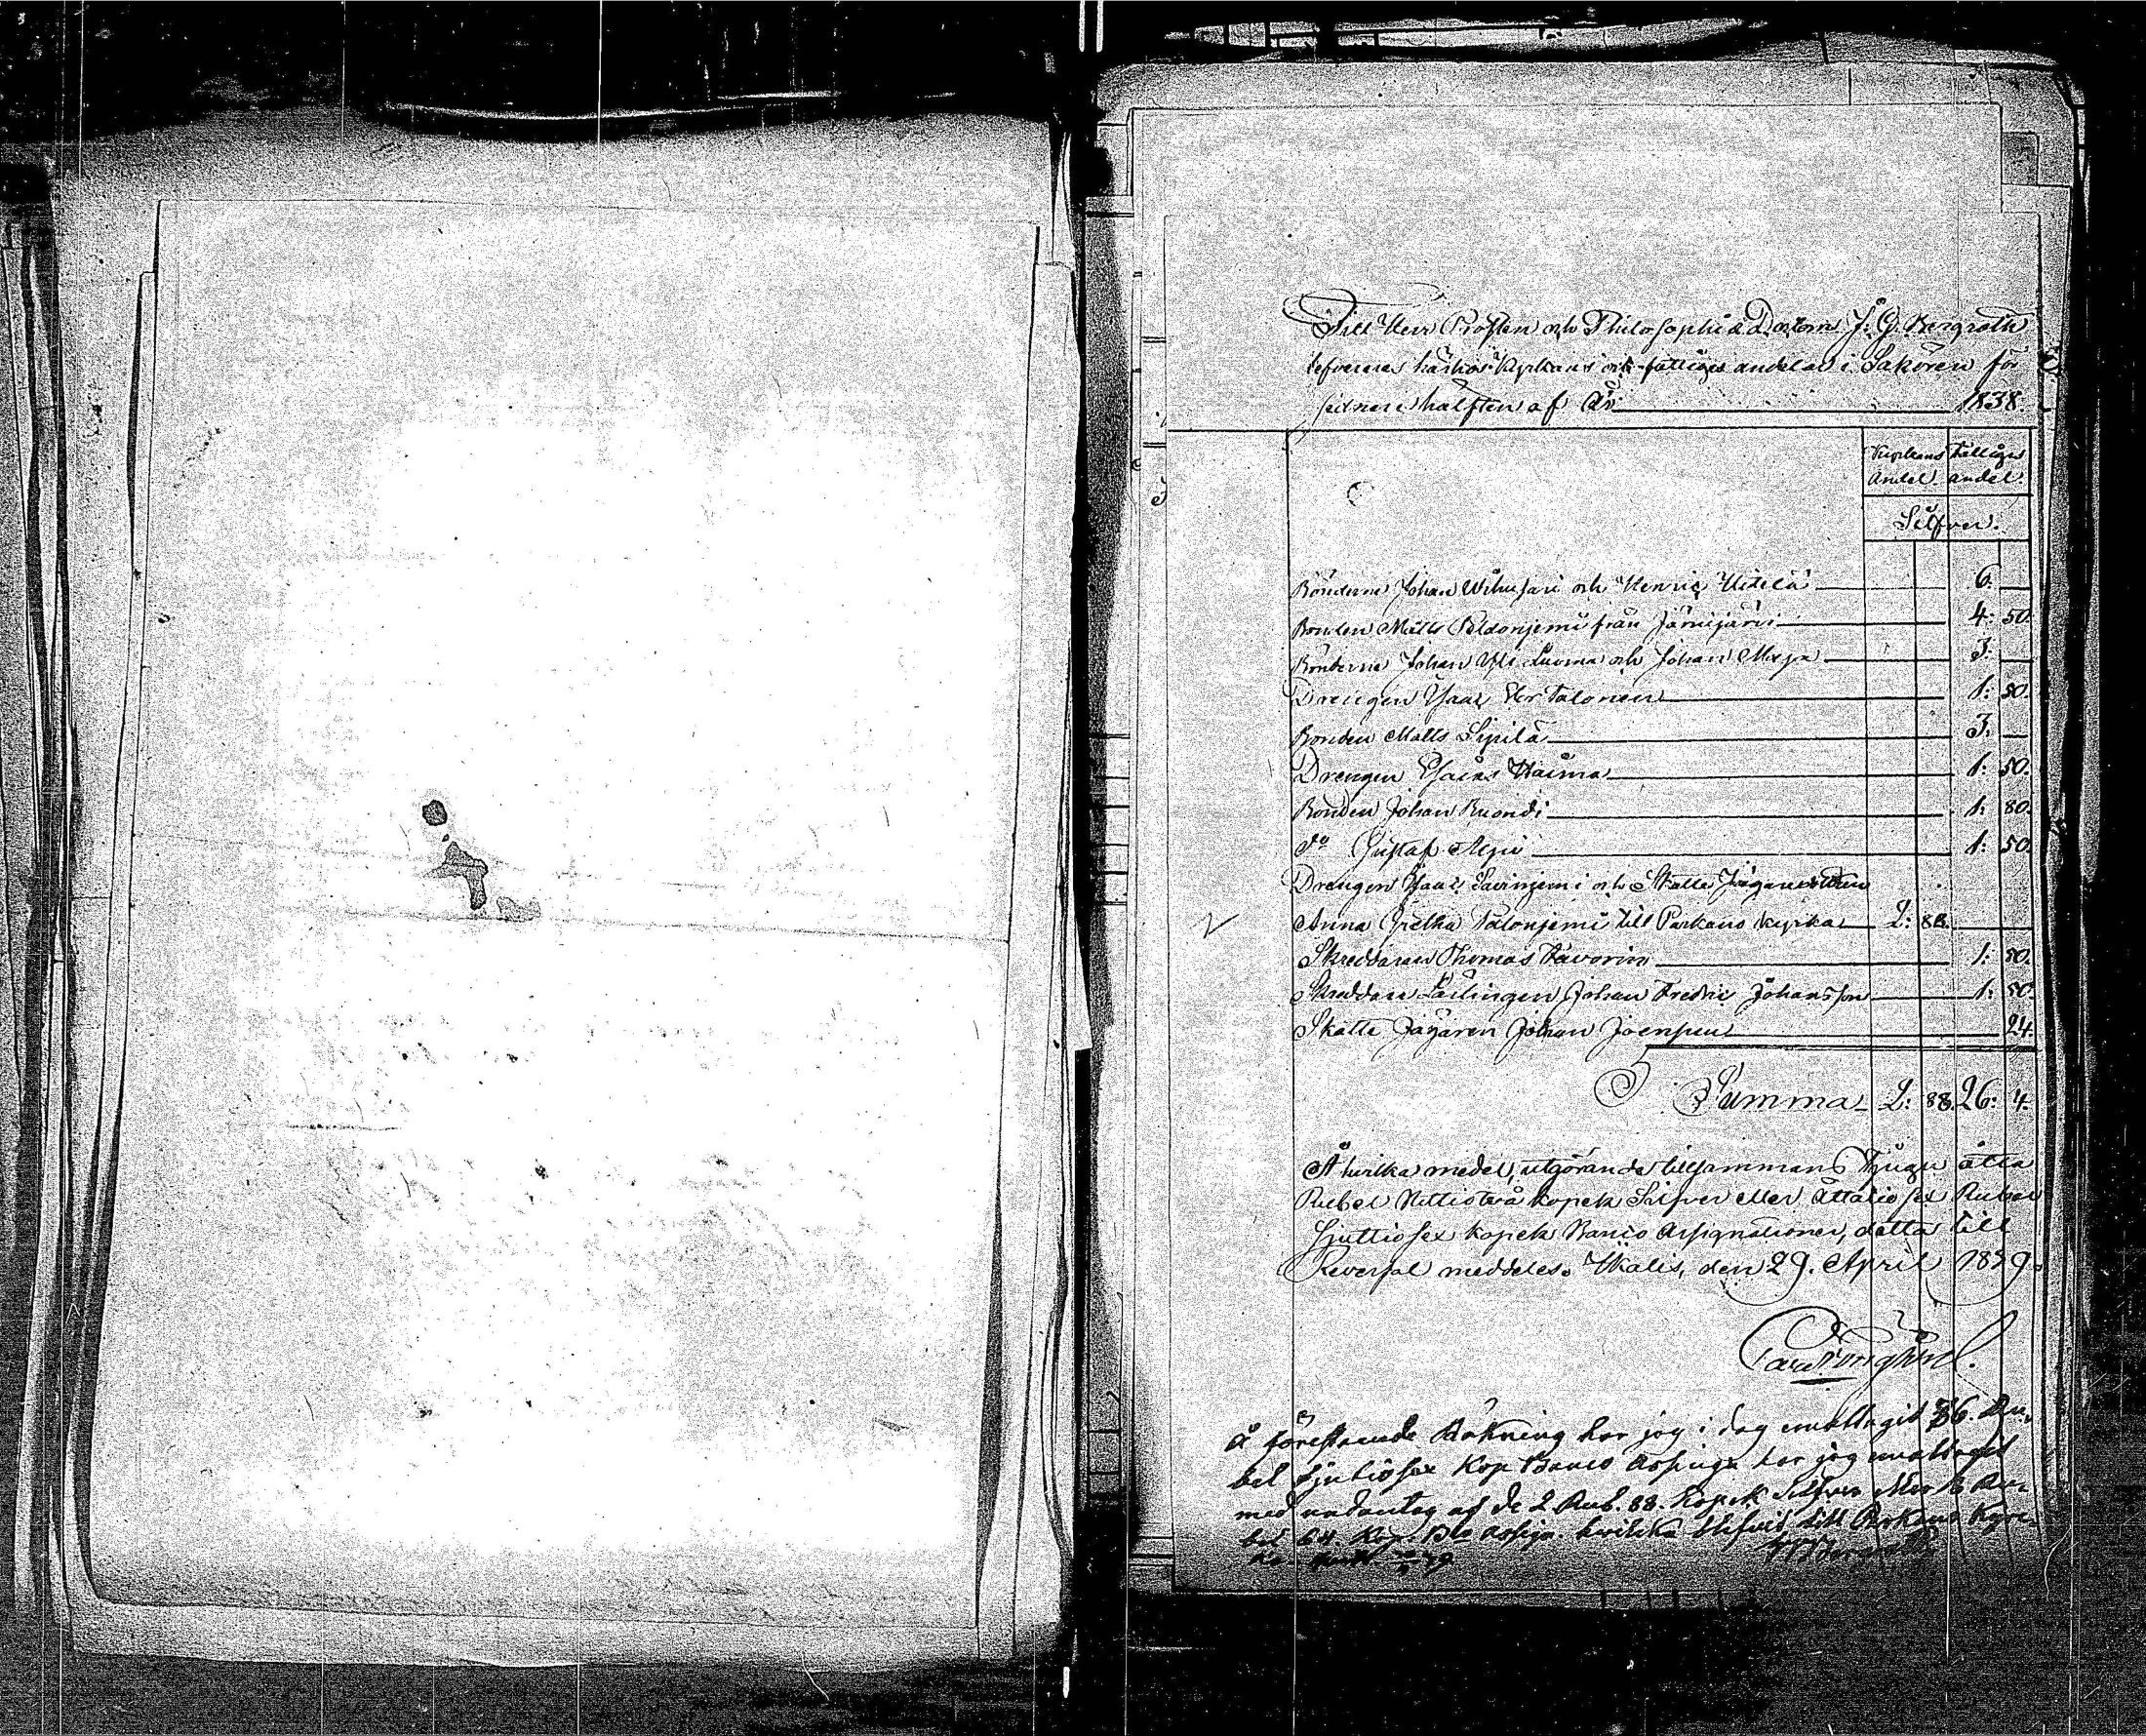 Till Herr Prosten och Philosophiæ Doctorn J. G. Bergroth
lefvereras härhos Kyrkans och fattiges andelar i Sakören för
sednare hälften af År 1838.
Kyrkans Andel Fattiges andel
Silfver.
Bönderne Johan Wihusari och Henric Uitela 6.
Bonden Matts Poldonjemi från Jämijärvi 4: 50.
Bönderne Johan Yli Luoma och Johan Marja 3:
Drengen Isaac Ver Talonen 1: 50.
Bonden Matts Sipilä 3.
Drengen Esaias Haima 1: 50.
Bonden Johan Ruondi 1: 80.
Do Gustaf 1: 50.
Drengen Isaac Savinjemi och Skatte
Anna Gretha Talonjemi till Parkano kyrka 2: 88.
Skreddaren Thomas Favorin 1: 50.
Skreddare Lärlingen Johan Fredric Johansson 1: 50.
Skatte Jägaren Johan Joenpuu 24.
Summa 2: 88. 26: 4.
Å hvilka medel, utgörande tillsammans Tjugu åtta
Rubel Nittiotvå kopek Silfver eller Åttatio sex Rubel
Sjuttiosex kopek Banco Assignationer, detta till
Reversal meddeles. Ikalis, den 29. April 1839.
Å förestående Räkning har jag i dag emottagit 86. Ru-
bel Sjutiosex Kop Banco Assign har jag emottagit
med undantag af de 2 Rub. 88. Kopek Silfver eller 8 Ru-
bel 64. Kop. Bco Assign. hvilka till Parkano Kyrc-